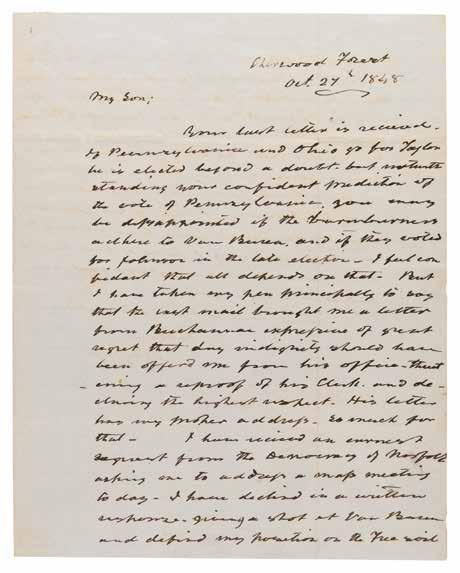 Sherwood Forest
Oct. 27th 1848
My Son;
Your last letter is recieved.
If Pennsylvania and Ohio go for Taylor
he is elected beyond a doubt. but notwith
standing your confident prediction of
the vote of Pennsylvania, you may
be disappointed if the barnburners
adhere to Van Buren, and if they voted
for Johnson in the late election - I feel con
fident that all depends on that - But
I have taken my pen principally to say
that the last mail brought me a letter
from Buchanan expressive of great
regret that any indignity should have
been offerd me from his office - threat
ening a reproof of his Clerk. and de-
claring the highest respect. His letter
has my proper address. So much for
that - I have recieved an earnest
request from the Democracy of Norfolk
asking me to address a mass meeting
to day - I have declind in a written
response. giving a shot at Van Buren
and defend my position on the Free soil